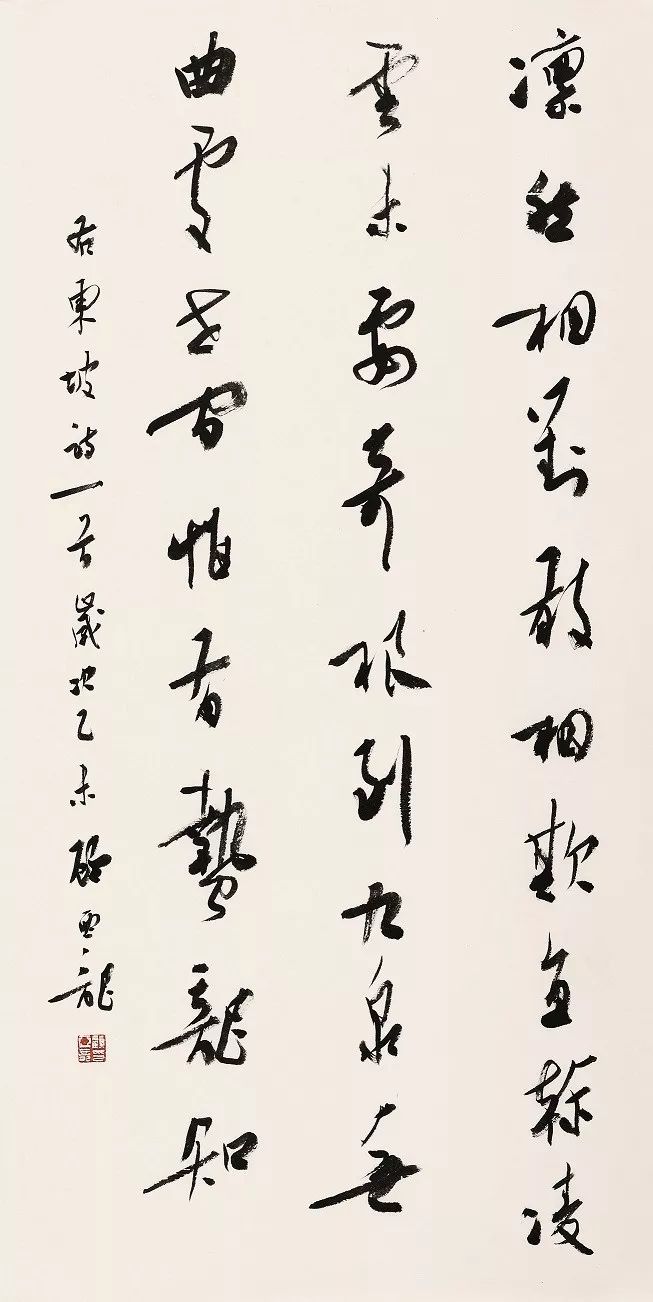 凛然相對敢相欺直幹凌
雲未要奇根到九泉無
曲處世間惟有蟄龍知
右東坡詩一首歲次乙未顧亞龍